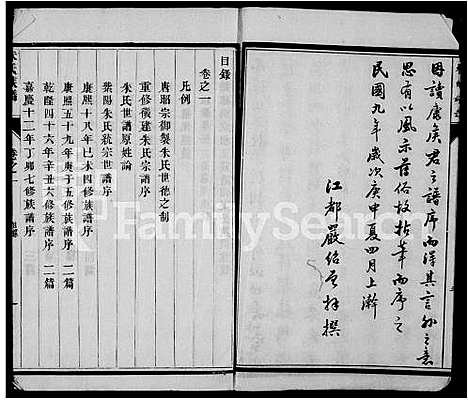 因讀盧侯君之譜序而深其言外之意
思有以風示薄俗故拈筆而序之
民國九年歲次庚申夏四月上澣
江都嚴撰
目錄
卷之一
凡例
唐昭宗御製朱氏世德之制
重修儀建朱氏宗譜序
朱氏世譜原姓論
滎陽朱氏統宗世譜序
康熙十八年己未四修族譜序
康熙五十九年庚子五修族譜序 二篇
乾隆四十六年辛丑六修族譜序 二篇
嘉慶十二年丁卯七修族譜序
FamilySearch